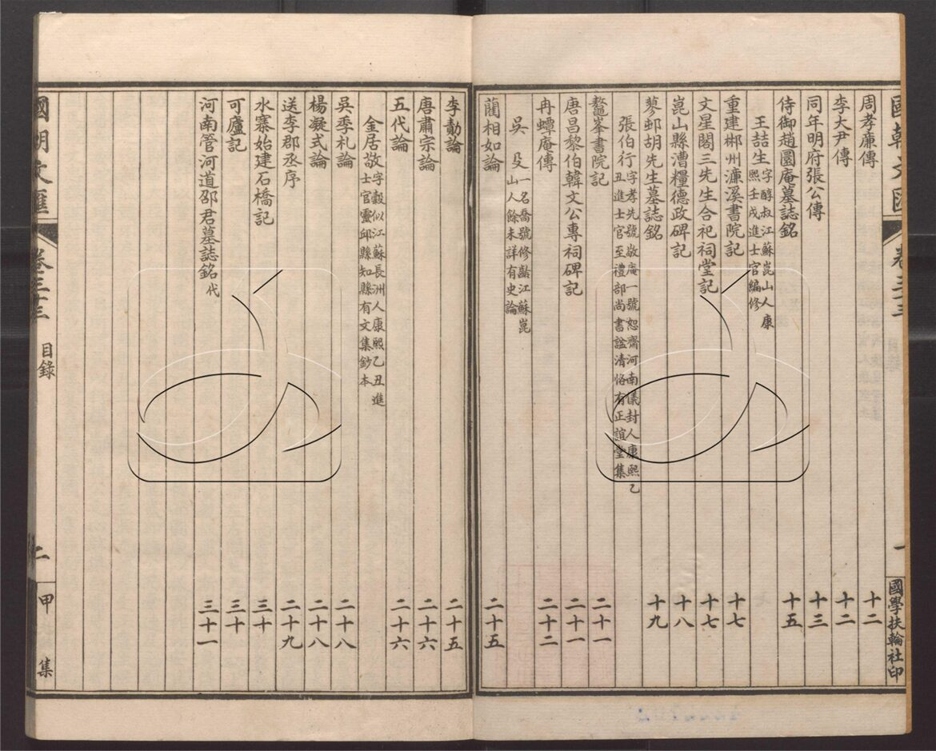 國朝文匯 卷三十三 一 國學扶輪社印
周孝廉傳 十二
李大尹傳 十二
同年明府張公傳 十三
侍御趙圃庵墓誌銘 十五
王喆生 字醇叔江蘇崑山人康
熙壬戌進士官編修
重建郴州濂溪書院記 十七
文星閣三先生合祀祠堂記 十七
崑山縣漕糧德政碑記 十八
蓼邨胡先生墓誌銘 十九
張伯行 字孝先號敬庵一號恕齋河南儀封人康熙乙
丑進士官至禮部尚書諡清恪有正誼堂集
鼇峯書院記 二十一
唐昌黎伯韓文公專祠碑記 二十一
冉蟫庵傳 二十二
吳殳 一名喬號修齡江蘇崑
山人餘未詳有史論
藺相如論 二十五
李勣論 二十五
唐肅宗論 二十六
五代論 二十六
金居敬 字穀似江蘇長洲人康熙乙丑進
士官靈邱縣知縣有文集鈔本
吳季札論 二十八
楊凝式論 二十八
送李郡丞序 二十九
水寨始建石橋記 三十
可廬記 三十
河南管河道邵君墓誌銘代 三十一
國朝文匯 卷三十三 目錄 二 甲集